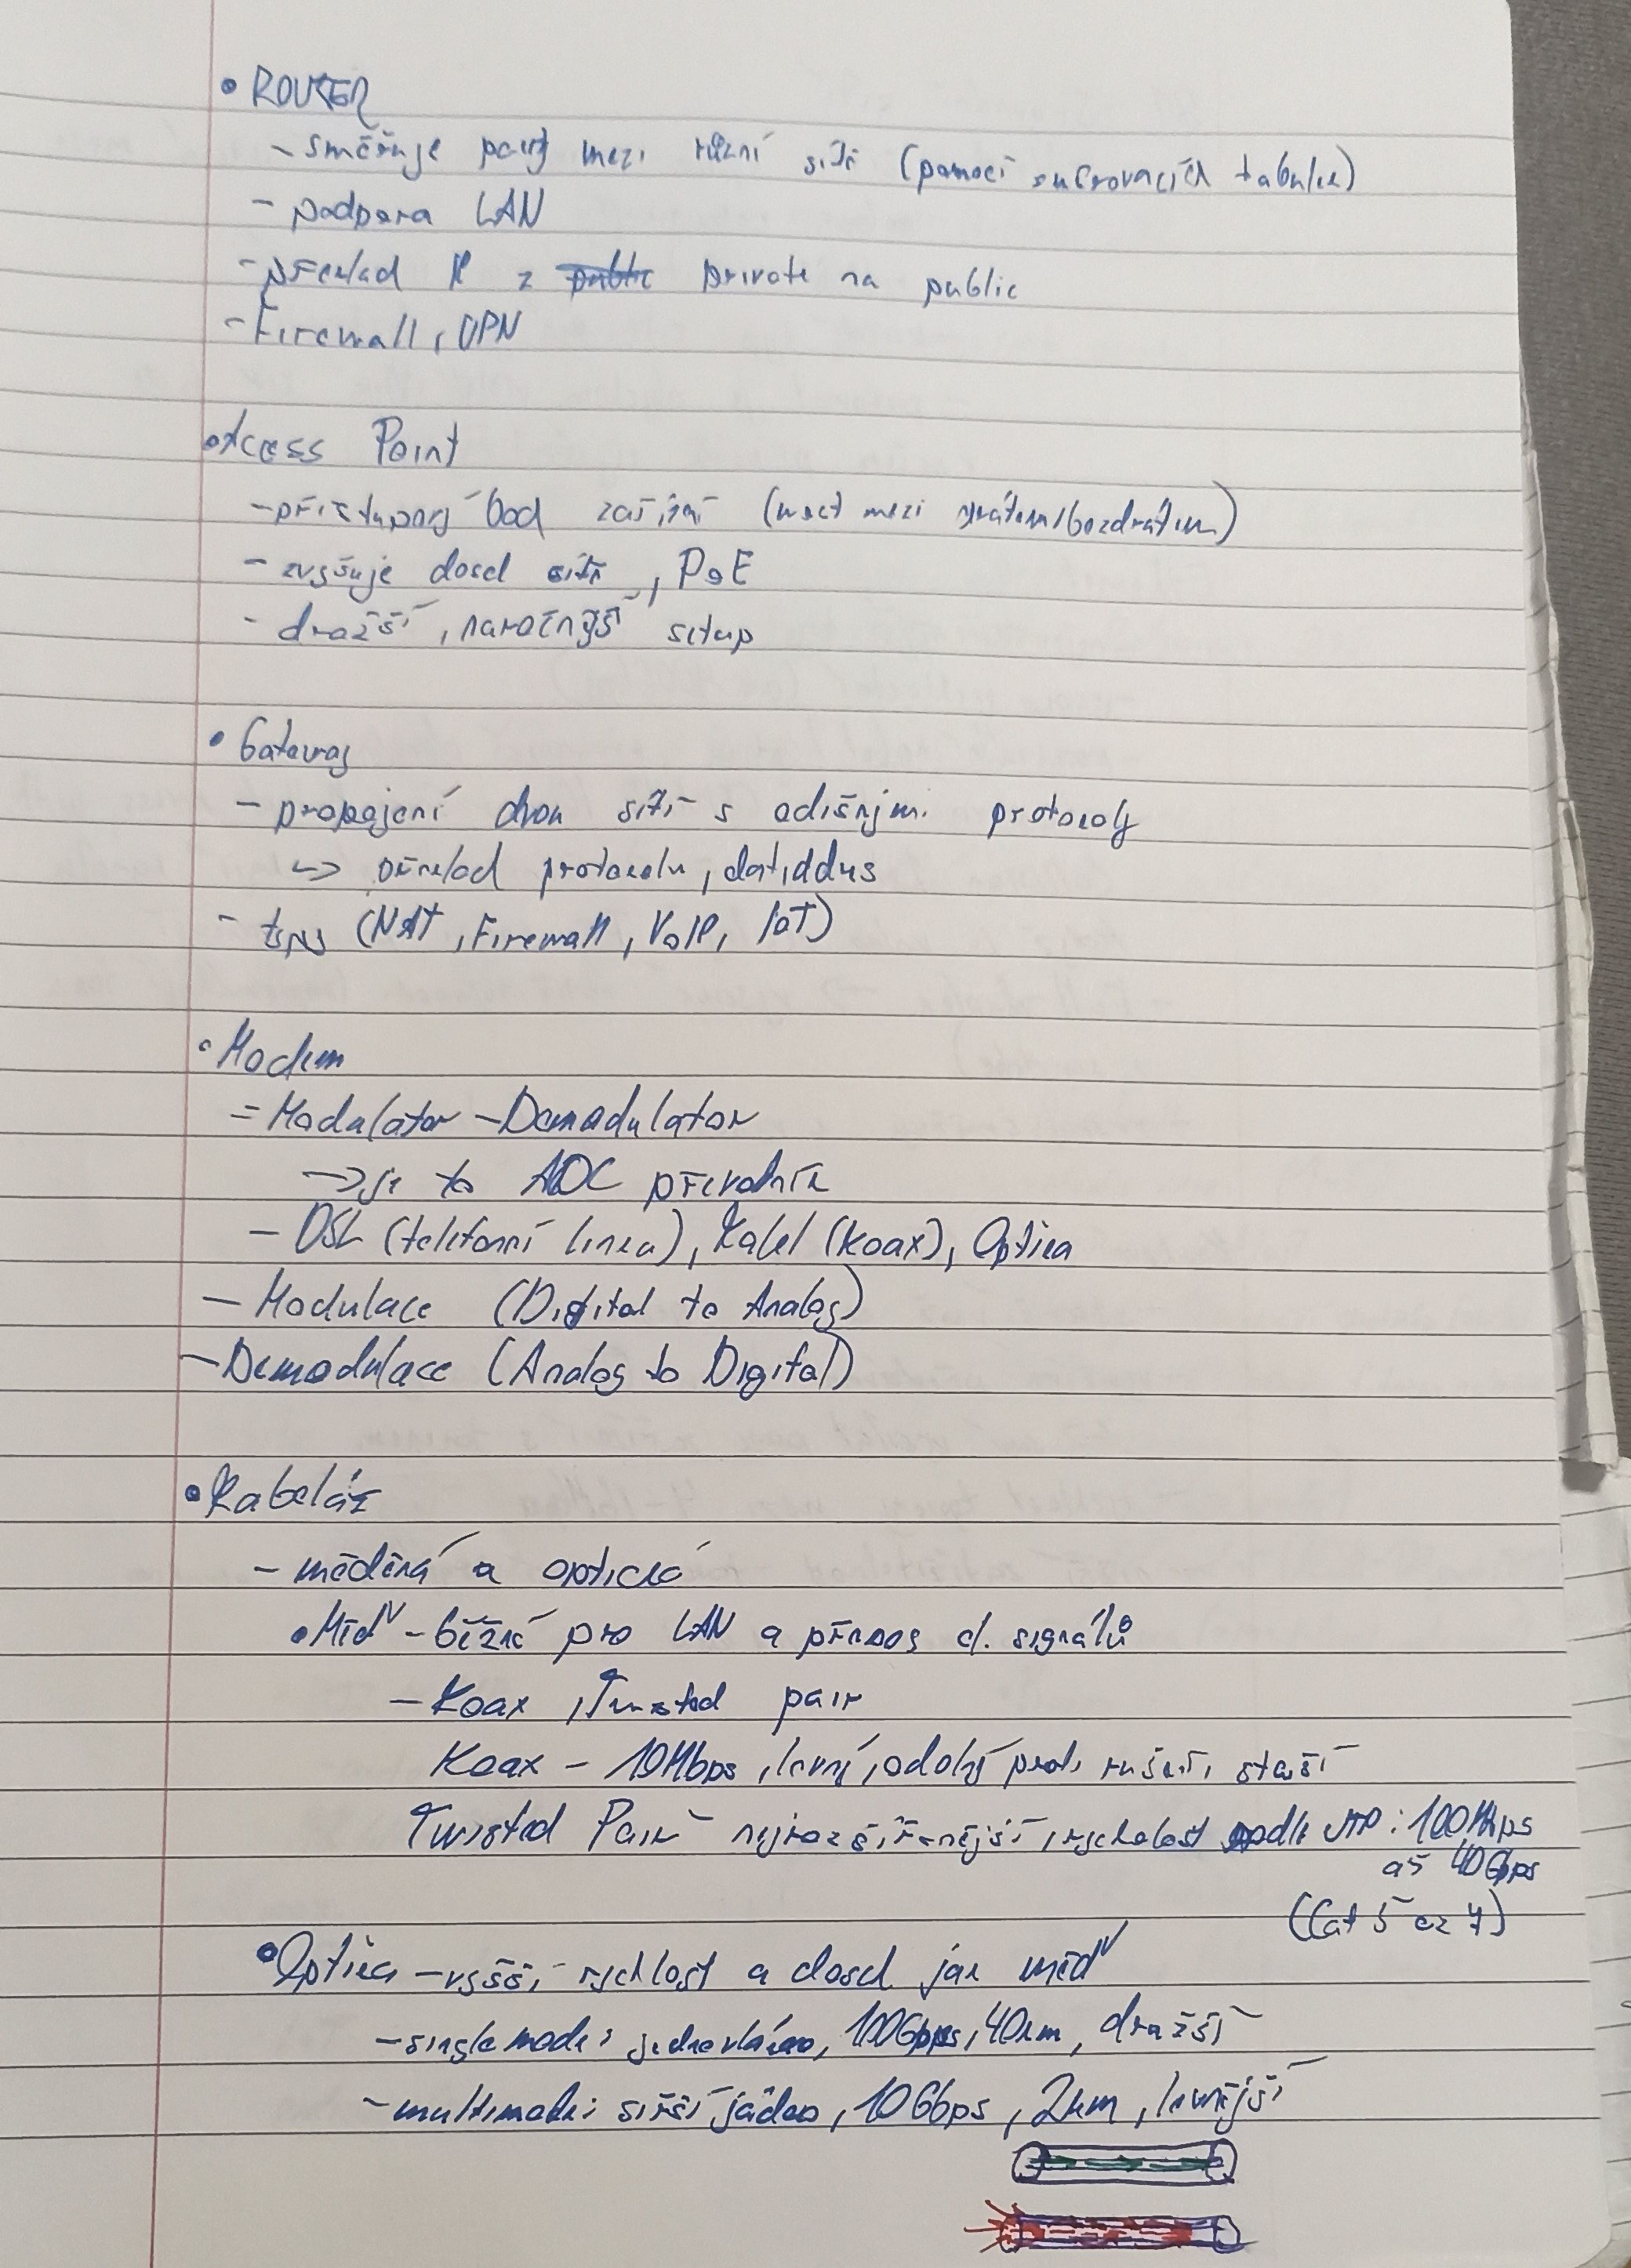 • ROUTER
- směřuje pakety mezi různí sítě (pomocí směrovacích tabulek)
- podpora LAN
- překlad IP z private na public
- Firewall, VPN
• Access Point
- přístupový bod zařízení (most mezi drátem/bezdrátem)
- zvyšuje dosah sítě, PoE
- dražší, náročnější setup
• Gateway
- propojení dvou sítí s odlišnými protokoly
↳ překlad protokolu, dat, addres
- typy (NAT, Firewall, VoIP, IoT)
• Modem
= Modulátor - Demodulator
→ je to ADC převodník
- DSL (telefonní linka), Kabel (koax), Optika
- Modulace (Digital to Analog)
- Demodulace (Analog to Digital)
• Kabeláž
- měděná a optická
• Měď - běžné pro LAN a přenos d. signálů
- Koax, Twisted pair
Koax - 10Mbps, levný, odolný proti rušení, starší
Twisted Pair - nejrozšířenější, rychlost podle UTP: 100Mbps
až 40Gbps
(Cat 5 až 7)
• Optika - vyšší rychlost a dosah jak měď
- singlemode: jednovlákno, 100Gbps, 40km, dražší
- multimode: širší jádro, 10Gbps, 2km, levnější